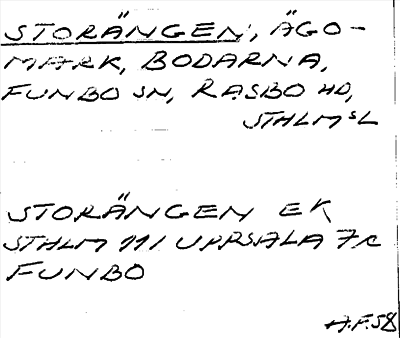 STORÄNGEN, ÄGO-
MARK, BODARNA,
FUNBO SN, RASBO HD,
STHLMS L
STORÄNGEN EK
STHLM 111 UPPSALA 7c
FUNBO
A.F.58